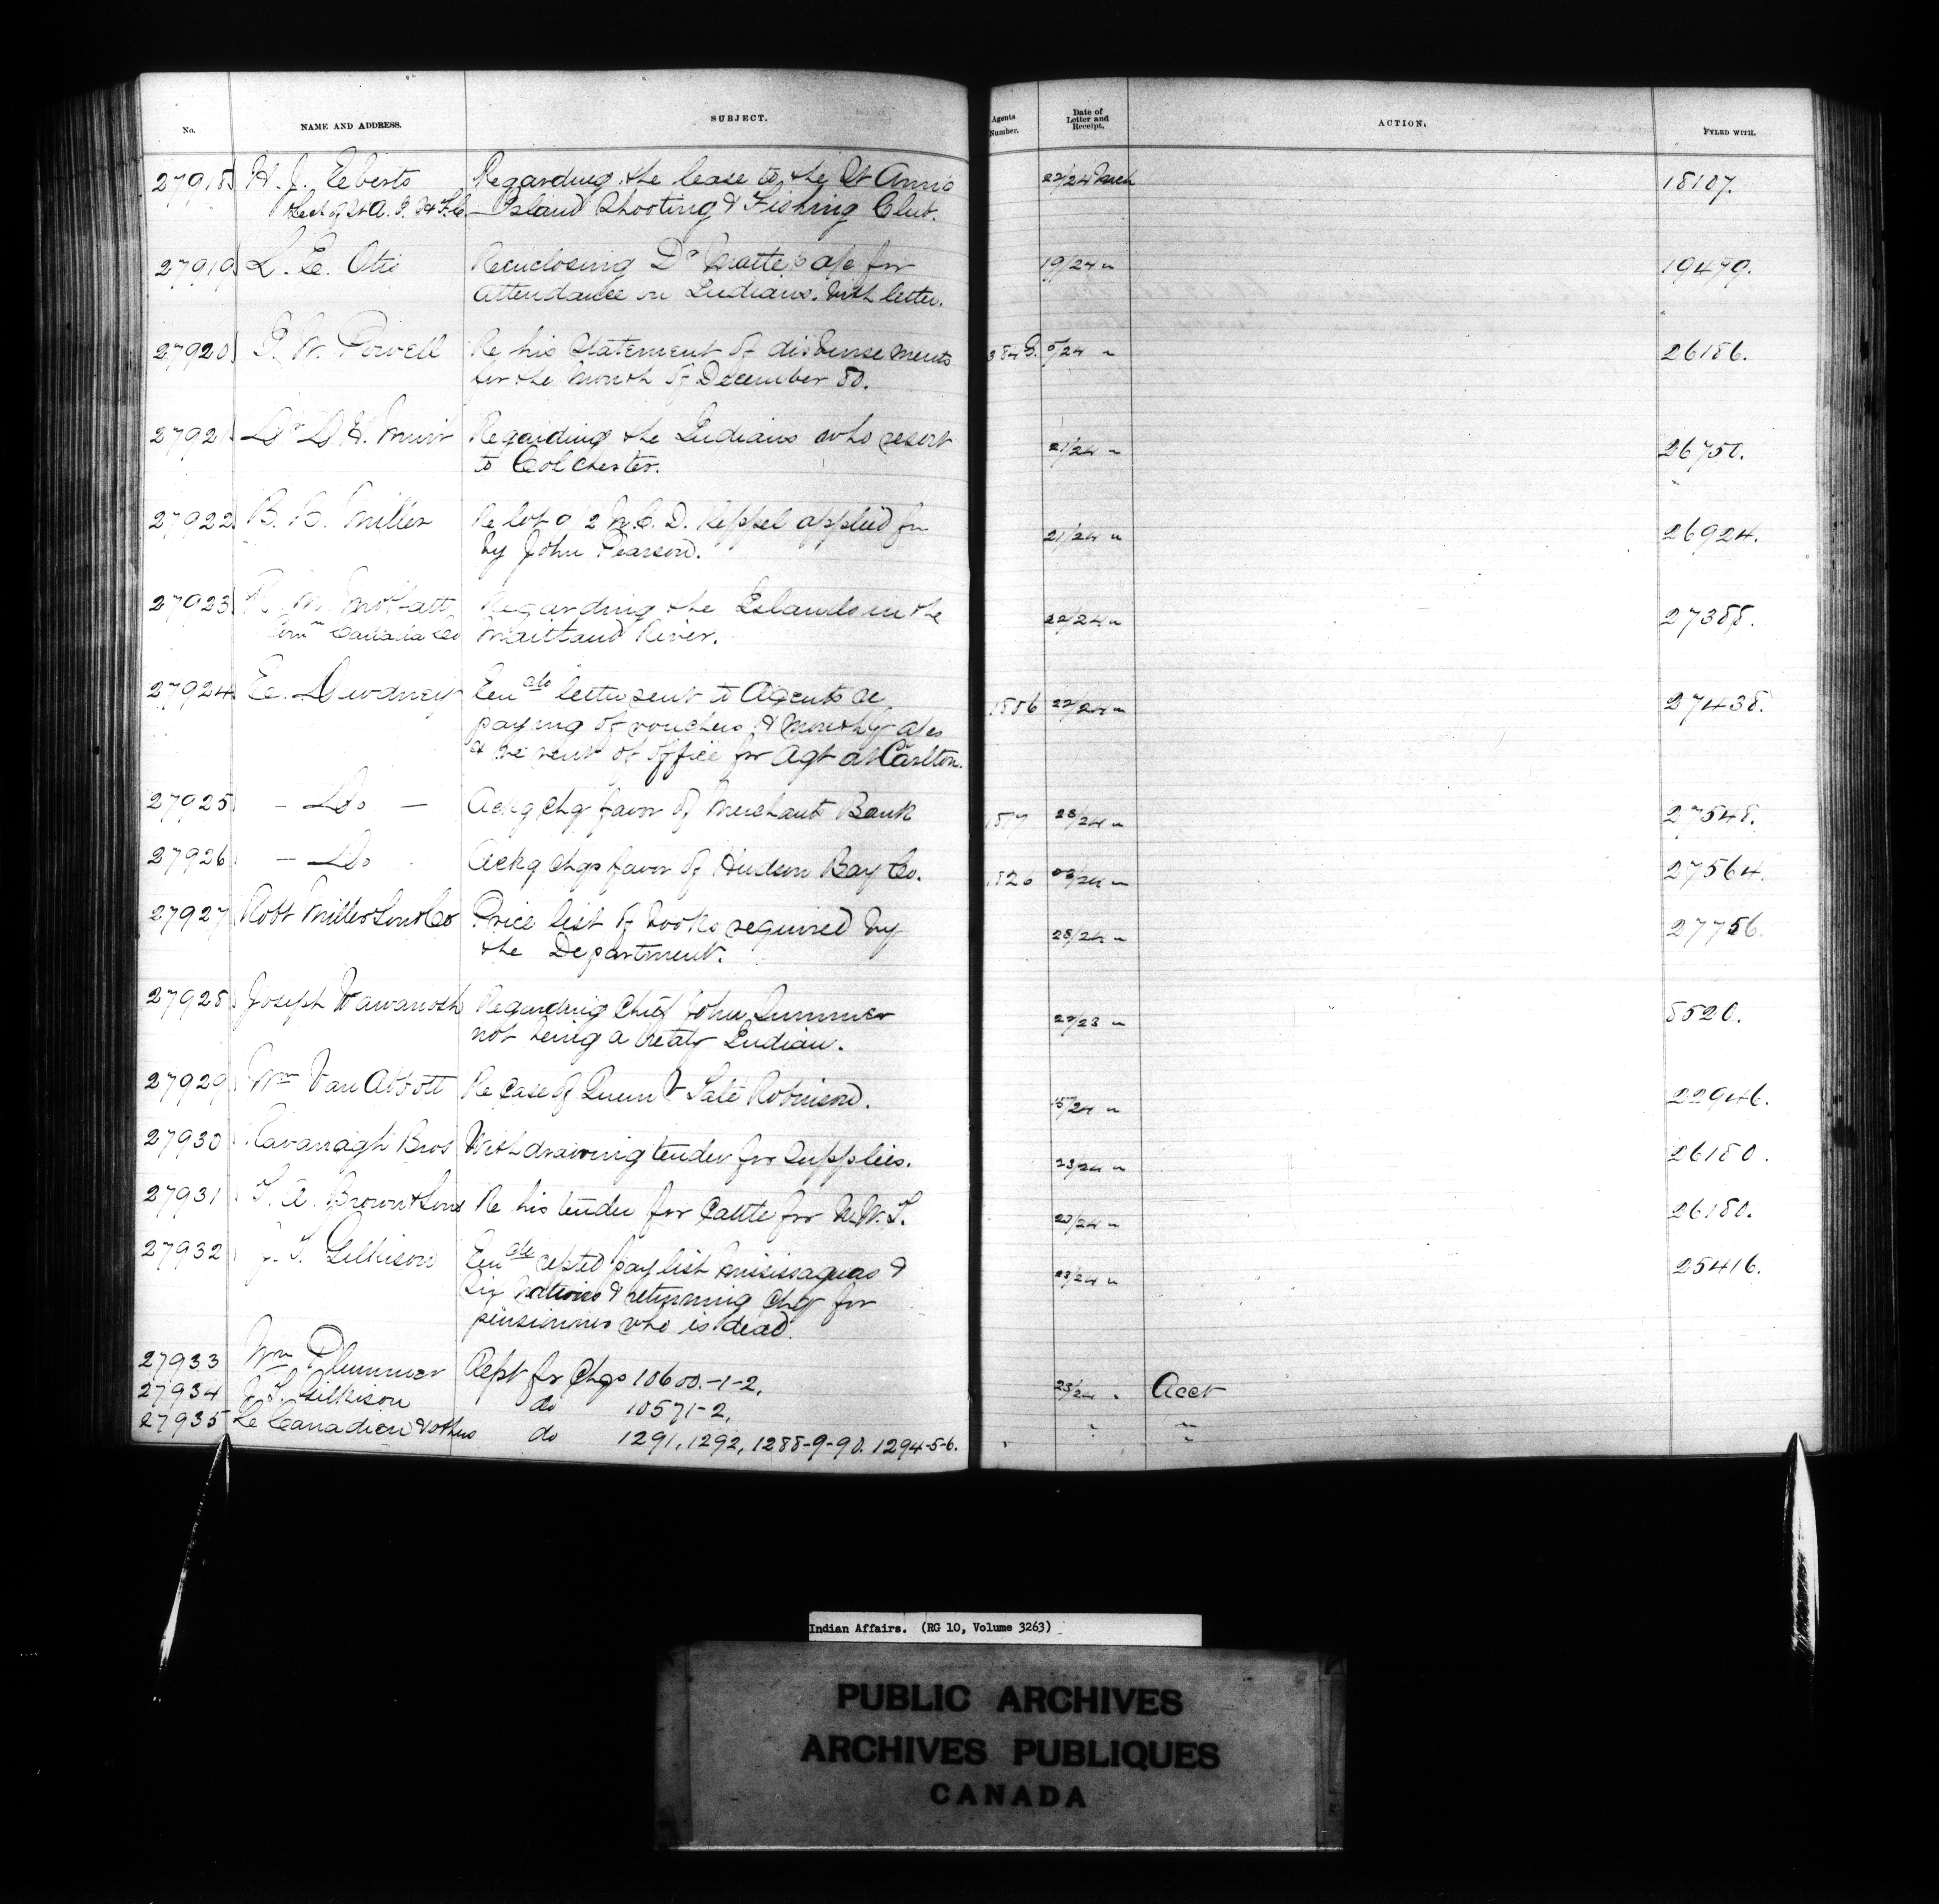 No. NAME AND ADDRESS. SUBJECT. Agents Number. Date of Letter and Receipt. ACTION. FYLED WITH.
27918 H. J. Eberts Regarding the lease to the St Anns 22/24 Mch 18107.
Island Shooting & Fishing Club.
27919 L. E. Otis Reenclosing Dr Matte's a/c for 19/24 " 19479.
attendance on Indians. With letter.
27920 I. W. Powell Re his Statement of disbursements 384 5/24 " 26186.
for the Month of December 80.
27921 Dr D. H. Muir Regarding the Indians who resort 21/24 " 26750.
to Colchester.
27922 B. C. Miller Re lot 9/2 N.C.D. Keppel applied for 21/24 " 26924.
by John Pearson.
27923 Regarding the Islands in the 22/24 " 27388.
Canada Co Maitland River.
27924 E. Dewdney letter sent to Agents re 22/24 " 27438.
paying of vouchers & monthly a/cs
& re rent of office for Agt at Carlton.
27925 — Do — Ackg chq favor of Merchants Bank 23/24 " 27548.
27926 — Do Ackg chqs favor of Hudson Bay Co. 1826 27564.
27927 Robt Miller Son & Co Price list of books required by 23/24 " 27756.
the Department.
27928 Joseph Wawanosh Regarding Chief John Summer 22/23 " 8520.
not being a treaty Indian.
27929 Wm Van Abbott Re Case of Queen V Salé Robinson. 15/24 " 22946.
27930 Cavanagh Bros Withdrawing tender for Supplies. 23/24 " 26180.
27931 T. A. Brown & Sons Re his tender for Cattle for N.W.T. 23/24 " 26180.
27932 J. T. Gilkison rcpted pay list Mississaguas & 23/24 " 25416.
Six Nations & returning chq for
pensioner who is dead.
27933 Wm Plummer Rcpt for Chqs 10600.-1-2. 23/24 " Acct
27934 J. T. Gilkison do 10571-2. " "
27935 Le Canadien & others do 1291, 1292, 1288-9-90. 1294-5-6. "
Indian Affairs. (RG 10, Volume 3263)
PUBLIC ARCHIVES
ARCHIVES PUBLIQUES
CANADA